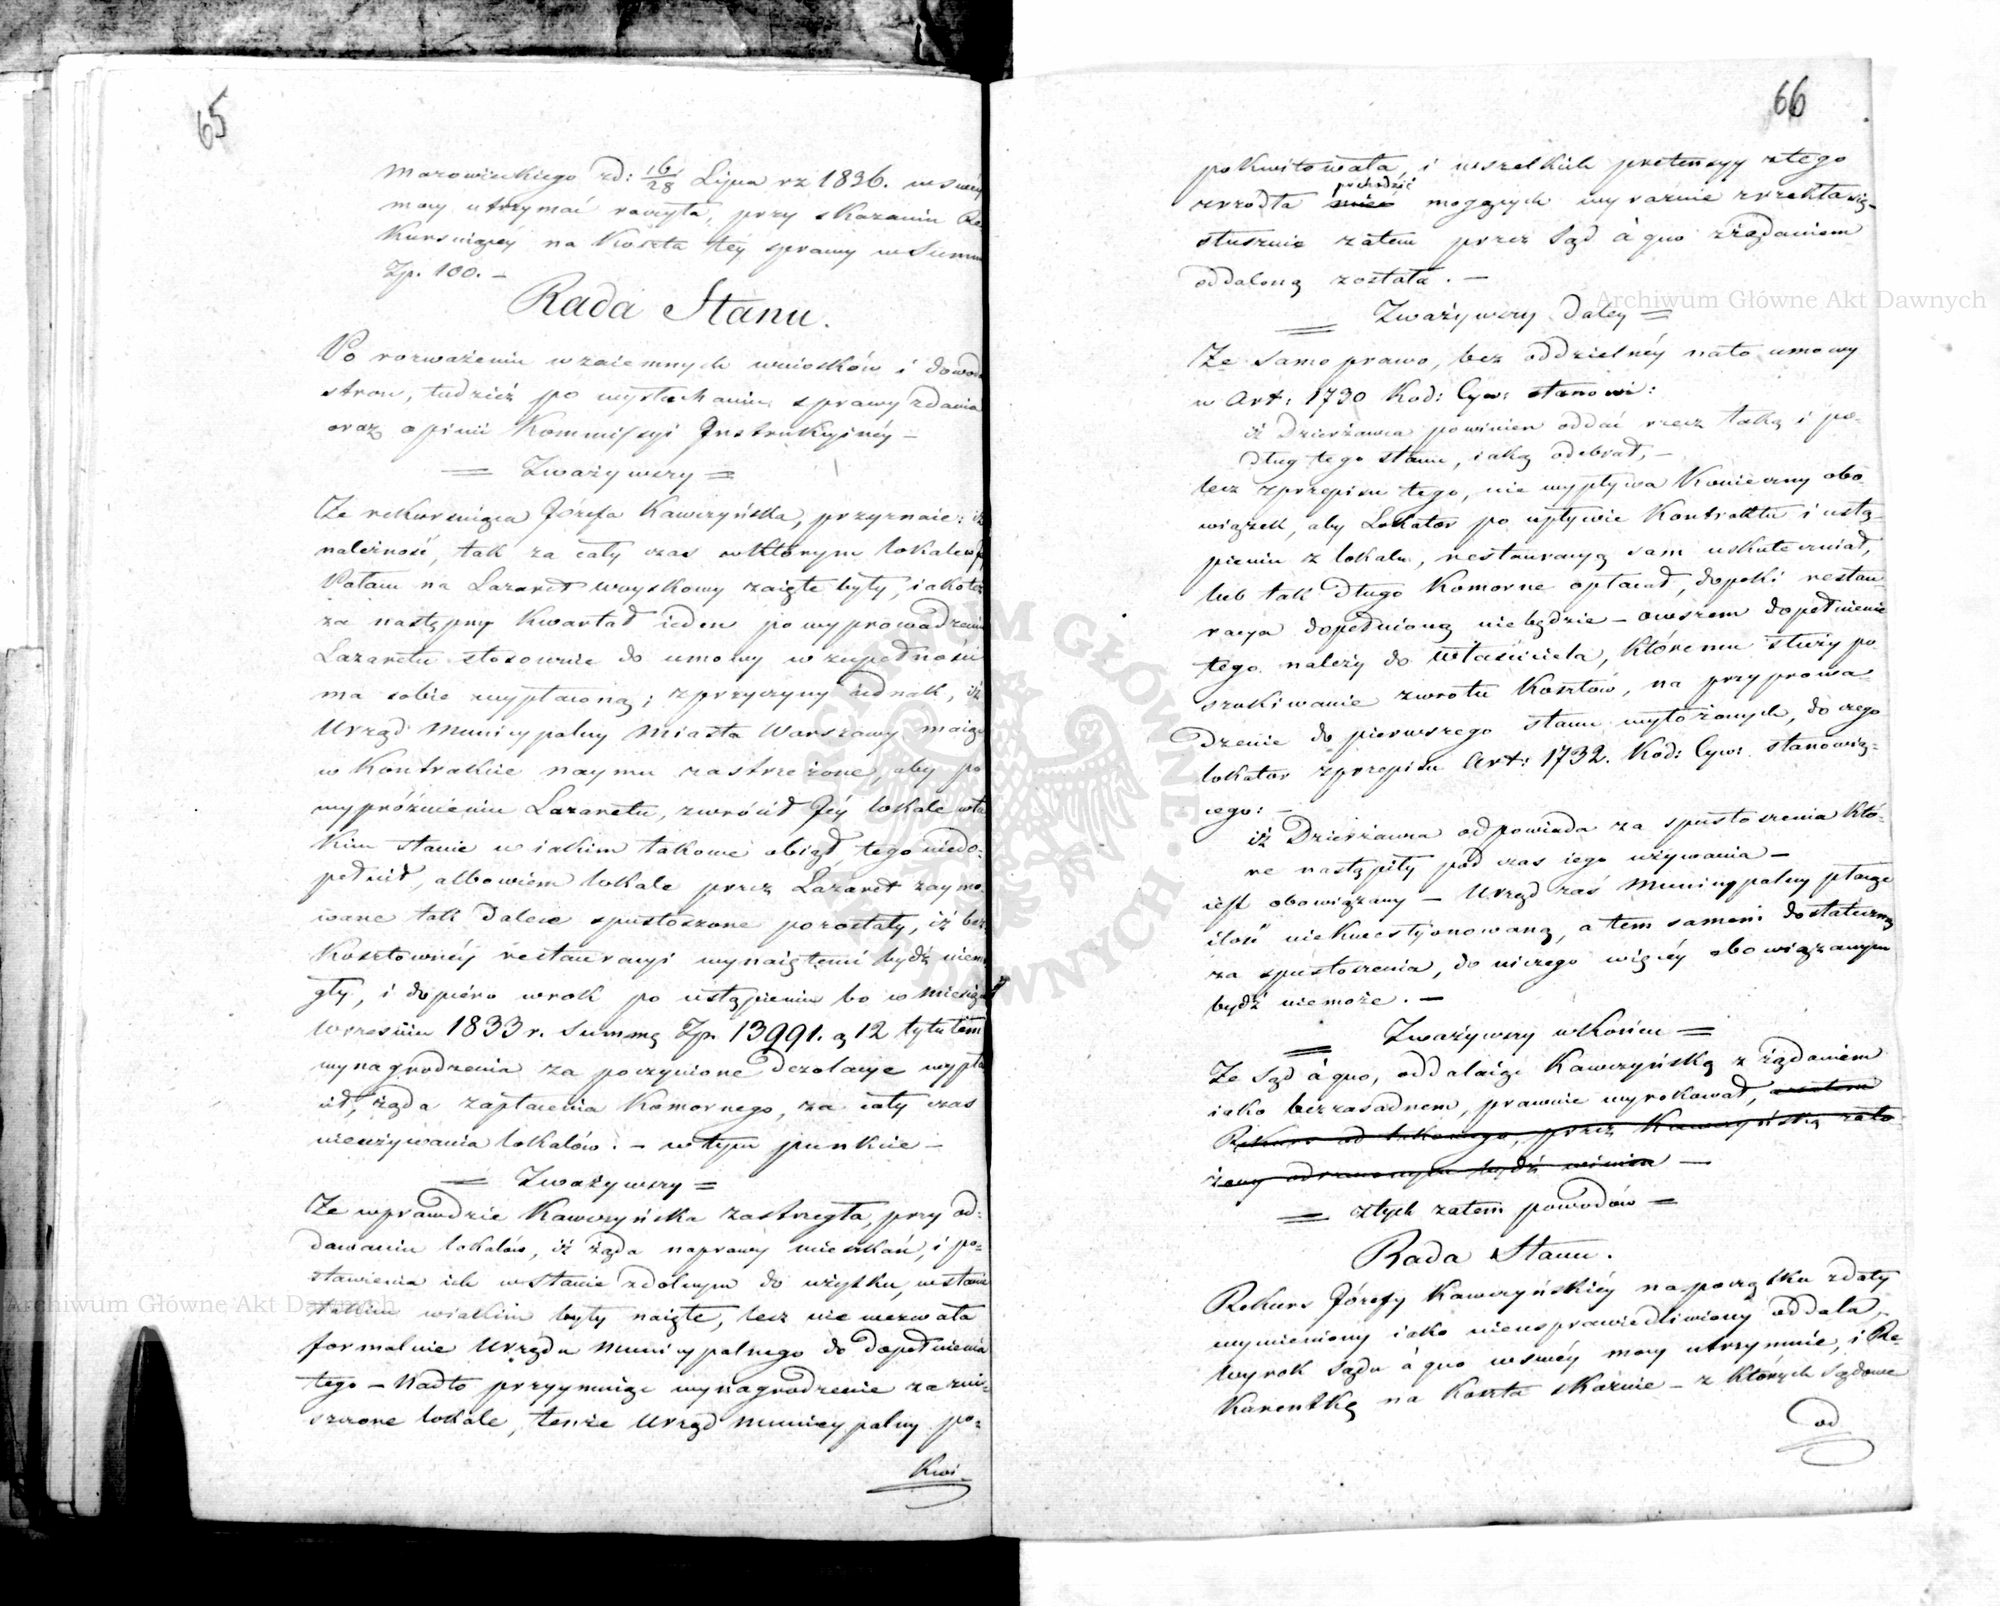 65
Mazowieckiego zd: 16/28 Lipca rz 1836. w swéy
mocy utrzymać raczyła, przy skazaniu Re-
kursuiącéy na Koszta téy sprawy w Summ
Zp. 100. —
Rada Stanu.
Po rozważeniu wzaiemnych wniosków i dowod
stron, tudzież po wysłuchaniu sprawy zdania
oraz opinii Kommissyi Instrukcyinéy —
= Zważywszy =
Że rekursuiąca Józefa Kawczyńska, przyznaie: iż
należność, tak za cały czas w którym lokale w
Pałacu na Lazaret woyskowy zaięte były, iakoteż
za następny Kwartał ieden po wyprowadzeniu
Lazaretu stosownie do umowy w zupełności
ma sobie wypłaconą; z przyczyny iednak, iż
Urząd Municypalny Miasta Warszawy maiąc
w Kontrakcie naymu zastrzeżone, aby po
wypróżnieniu Lazaretu, zwrócił Jéy lokale w ta
kim stanie w iakim takowe obiął, tego niedo-
pełnił, albowiem lokale przez Lazaret zaymo-
wane tak dalece spustoszone pozostały, iż bez
Kosztownéy restauracyi wynaiętemi bydź niemo
gły, i dopiéro w rok po ustąpieniu bo w Miesiącu
Wrześniu 1833 r. Summę Zp. 13991. g 12 tytułem
wynagrodzenia za poczynione dezolacye wypła
cił, żąda zapłacenia Komornego, za cały czas
nieużywania lokalów. — w tym punkcie —
= Zważywszy =
Że wprawdzie Kawczyńska zastrzegła, przy od-
dawaniu lokalów, iż żąda naprawy mieszkań, i po-
stawienia ich w stanie zdolnym do użytku, w stanie
takim w iakim były naięte, lecz nie wezwała
formalnie Urzędu Municypalnego do dopełnienia
tego — Nadto przyymuiąc wynagrodzenie za zni-
szczone lokale, tenże Urząd Municypalny po-
Kwi
66
pokwitowała, i wszelkich pretensyy z tego
pochodzić
zrzódła mogących wyraźnie zrzekła się
słusznie zatem przez Sąd à quo z żądaniem
oddaloną została. —
= Zważywszy daléy =
Że samo prawo, bez oddzielnéy na to umowy
w Art: 1730 Kod: Cyw: stanowi:
iż Dzierżawca powinien oddać rzecz taką i po-
dług tego stanu, iaką odebrał, —
lecz z przepisu tego, nie wypływa Konieczny obo-
wiązek, aby Lokator po upływie Kontraktu i ustą-
pieniu z lokalu, restauracyą sam uskuteczniał,
lub tak długo Komorne opłacał, dopóki restau-
racya dopełnioną niebędzie — owszem dopełnienie
tego należy do właściciela, któremu służy po
szukiwanie zwrotu Kosztów, na przyprowa-
dzenie do pierwszego stanu wyłożonych, do czego
lokator z przepisu Art: 1732. Kod: Cyw: stanowią-
cego: —
iż Dzierżawca odpowiada za spustoszenia któ-
re nastąpiły pod czas iego używania —
iest obowiązany — Urząd zaś Municypalny płacąc
ilość niekwestyonowaną, a tem samem dostateczną
za spustoszenia, do niczego więcéy obowiązanym
bydź niemoże. —
= Zważywszy w Końcu =
Że Sąd à quo, oddalaiąc Kawczyńską z żądaniem
iako bezzasadnem, prawnie wyrokował, a zatem
Rekurs od takowego, przez Kawczyńską zało-
żony odrzuconym bydź winien —
= z tych zatem powodów =
Rada Stanu.
Rekurs Józefy Kawczyńskiéy na początku z daty
wymieniony iako nieusprawiedliwiony oddala,
Wyrok Sądu à quo w swéy mocy utrzymuie, i Re-
Kurentkę na Koszta skazuie — z których Sądowe
od
Archiwum Główne Akt Dawnych
Archiwum Główne Akt Dawnych
ARCHIWUM GŁÓWNE AKT DAWNYCH